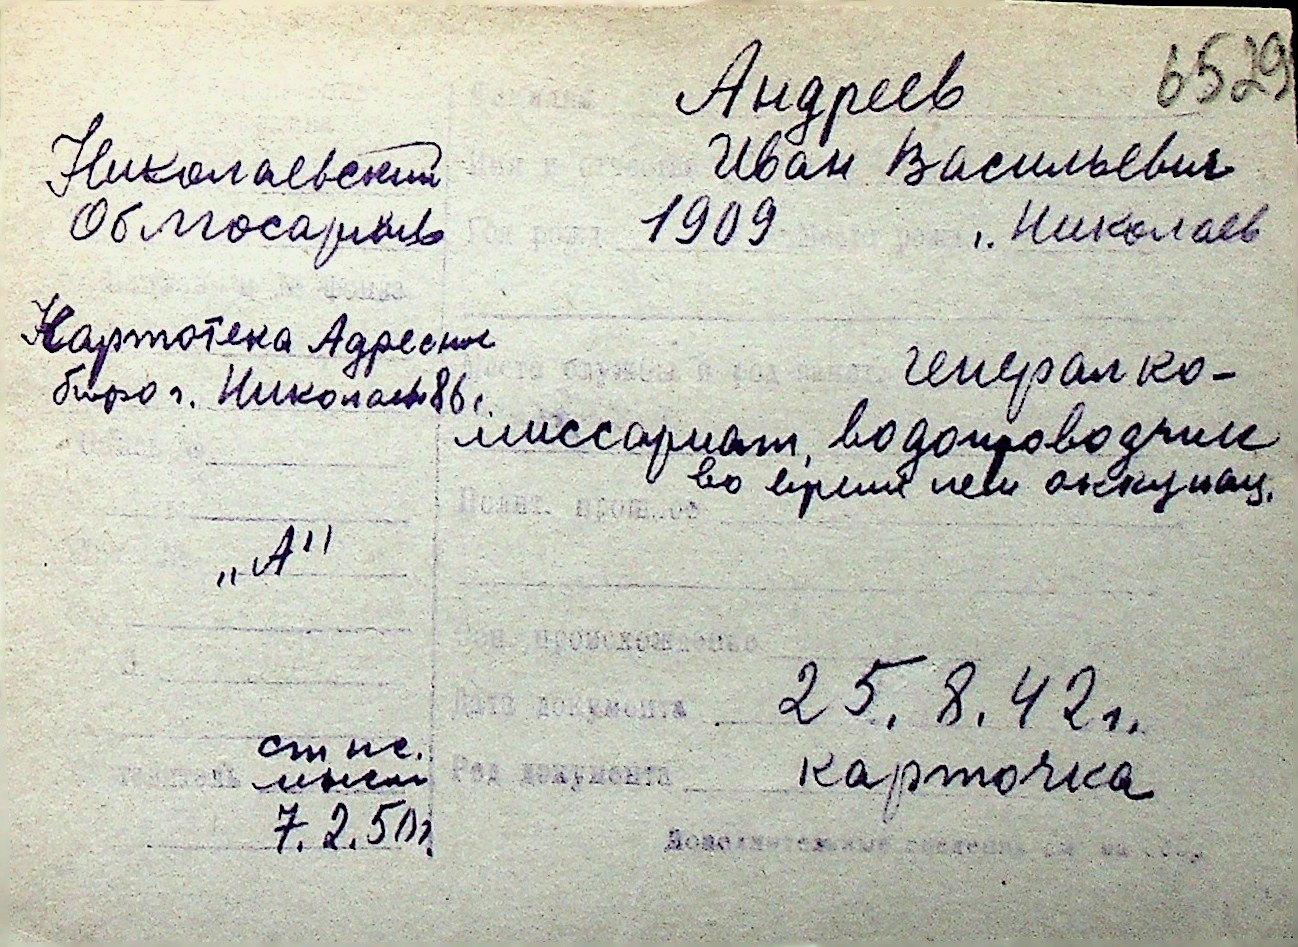 6529
Фамилия Андреев
Имя и отчество Иван Васильевич
Год рожд. 1909 рожд. г. Николаев
Николаевский
Облгосархив
№ фонда
Картотека Адресное
бюро г. Николаев 86 г.
Место службы и род занят. генералко-
миссариат, водопроводчик
во время нем оккупац.
Опись №
Полит. прошлое
„А"
Соц. происхождение
Дата документа 25.8.42 г.
Род документа карточка
ст нс.
7.2.50 г.
Дополнительные сведения на обор